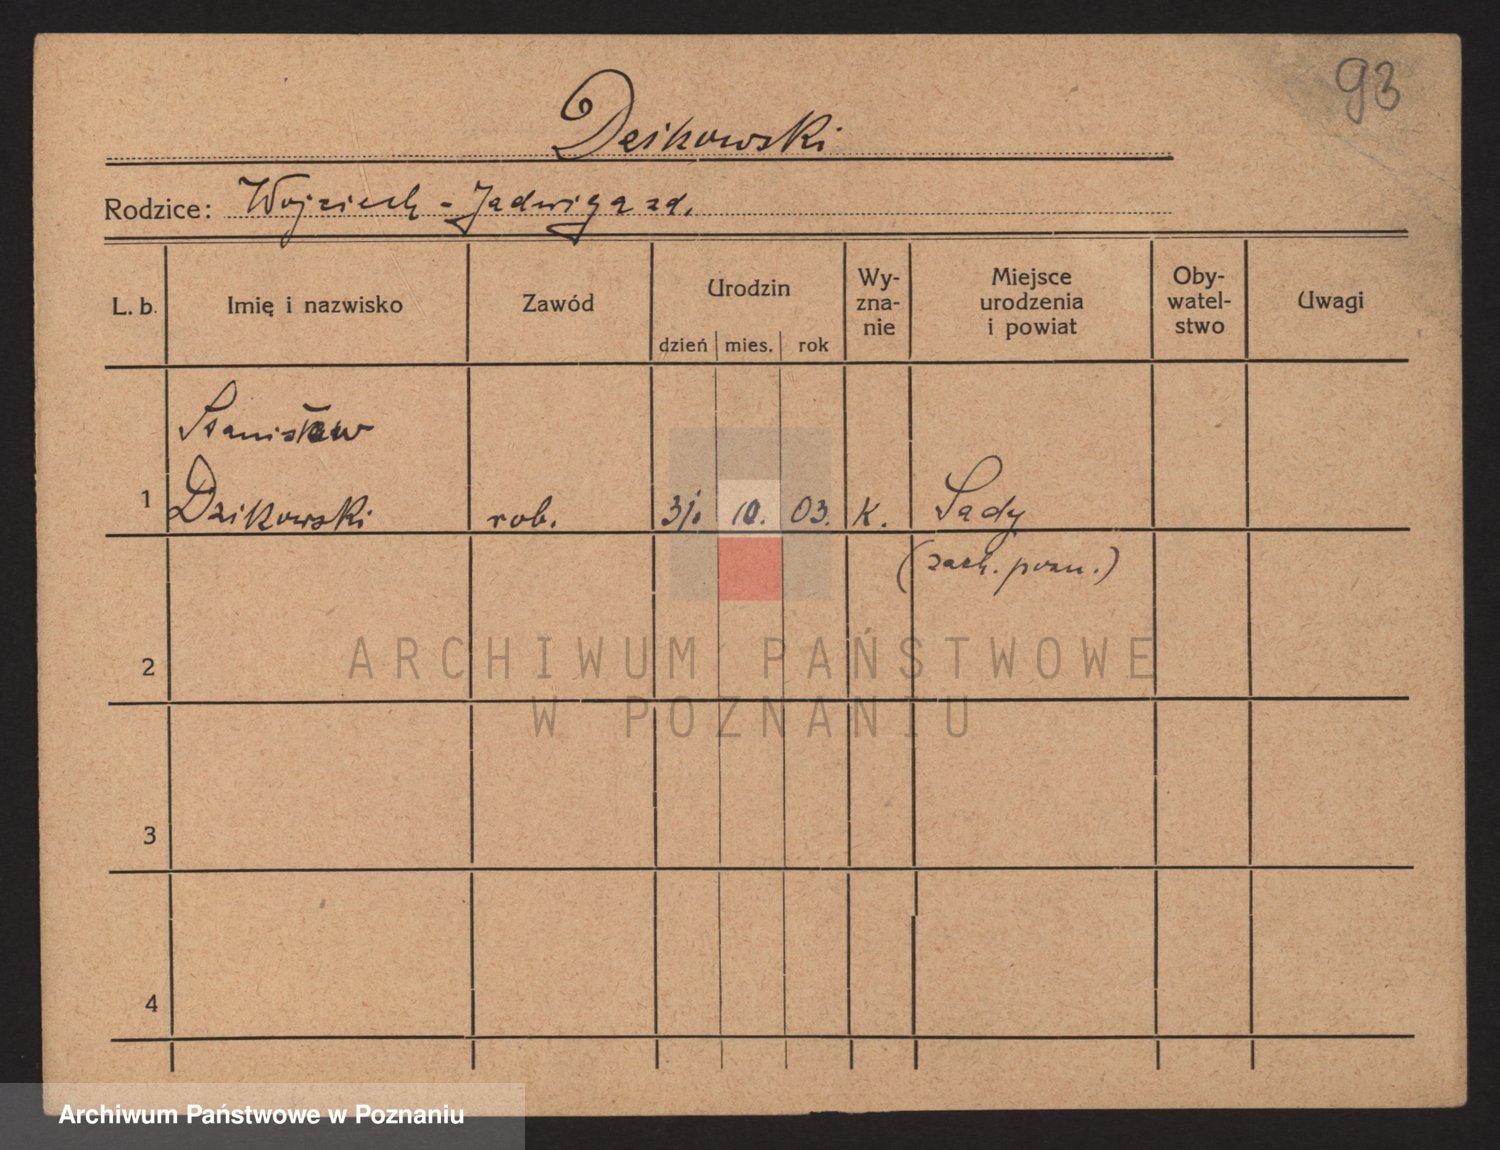 93
Dzikowski
Rodzice: Wojciech - Jadwiga zd.
L. b. Imię i nazwisko Zawód Urodzin Wy- Miejsce Oby- Uwagi
zna- urodzenia watel-
nie i powiat stwo
dzień mies. rok
Stanisław
1 Dzikowski rob. 31. 10. 03. K. Sady
(zach. pozn.)
2
ARCHIWUM PAŃSTWOWE
W POZNANIU
3
4
Archiwum Państwowe w Poznaniu